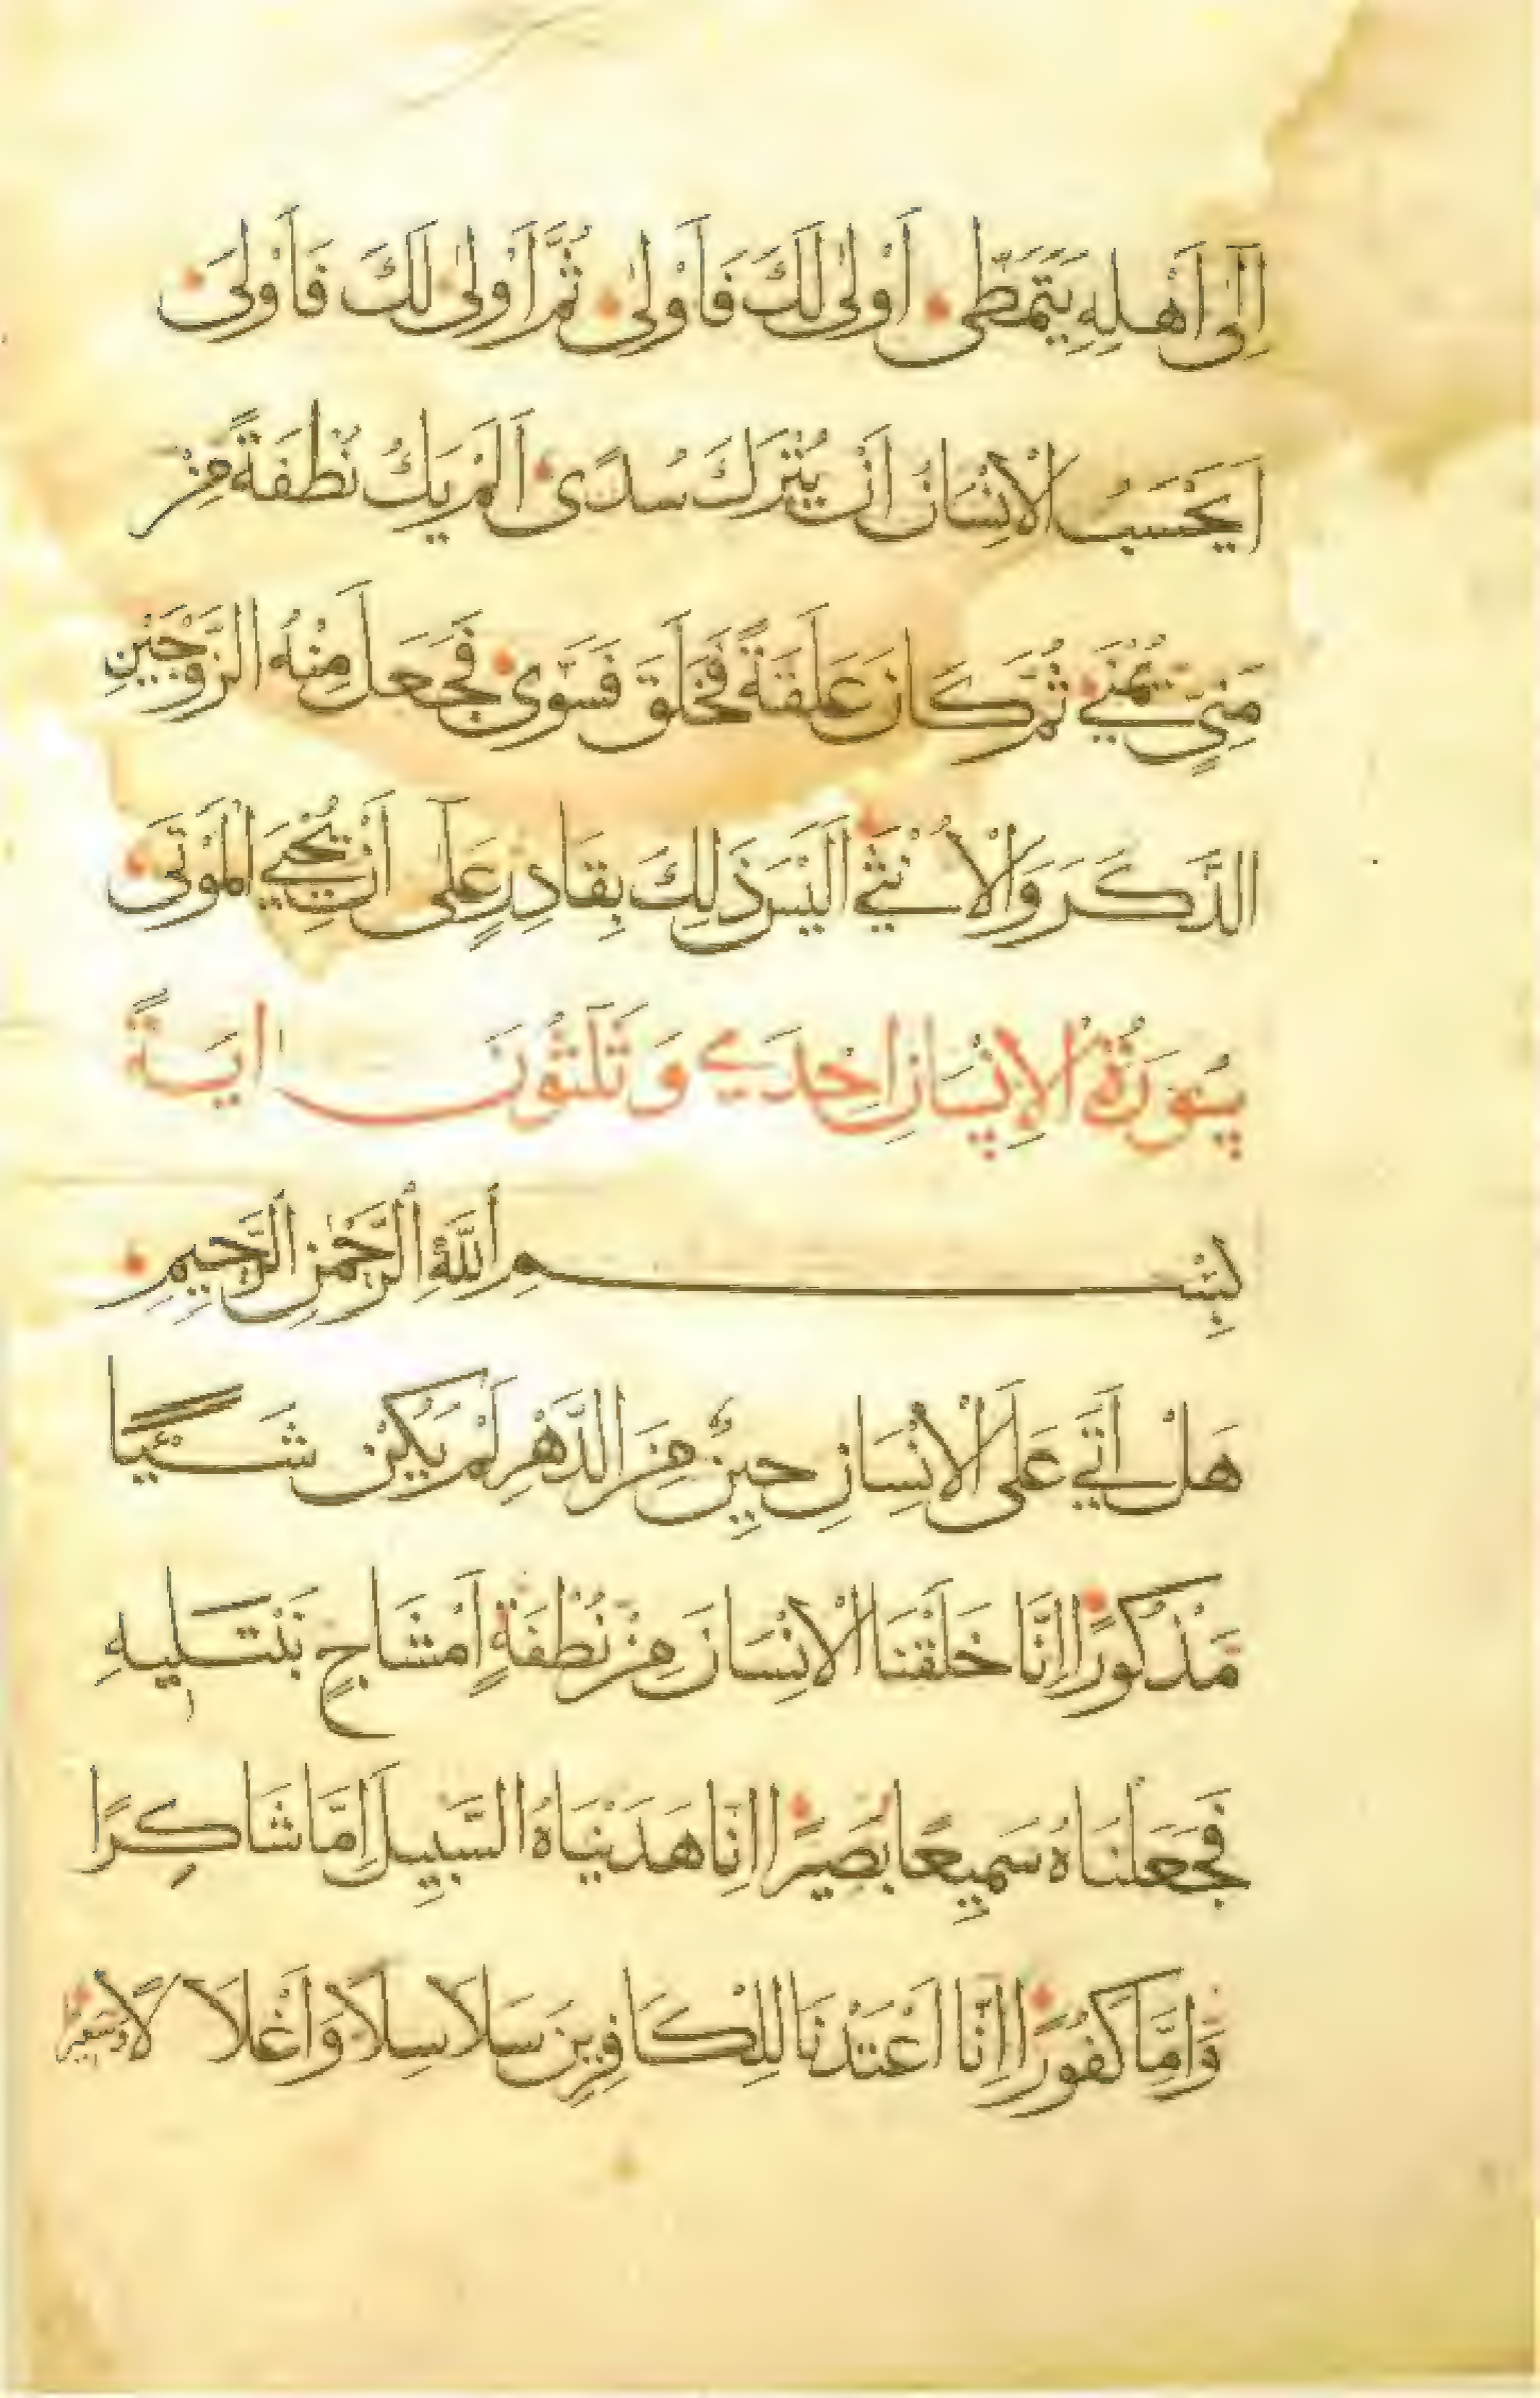 اِلٰى اَهْلِهِ يَتَمَطّٰى اَوْلٰى لَكَ فَاَوْلٰى ثُمَّ اَوْلٰى لَكَ فَاَوْلٰى
اَيَحْسَبُ الْاِنْسَانُ اَنْ يُتْرَكَ سُدًى اَلَمْ يَكُ نُطْفَةً مِنْ
مَنِىٍّ يُمْنٰى ثُمَّ كَانَ عَلَقَةً فَخَلَقَ فَسَوّٰى فَجَعَلَ مِنْهُ الزَّوْجَيْنِ
الذَّكَرَ وَالْاُنْثٰى اَلَيْسَ ذٰلِكَ بِقَادِرٍ عَلٰى اَنْ يُحْيِىَ الْمَوْتٰى
سُورَةُ الْاِنْسَانِ اِحْدَى وَثَلٰثُونَ اٰيَةً
بِسْمِ اللّٰهِ الرَّحْمٰنِ الرَّحِيمِ
هَلْ اَتٰى عَلَى الْاِنْسَانِ حِينٌ مِنَ الدَّهْرِ لَمْ يَكُنْ شَيْئًا
مَذْكُورًا اِنَّا خَلَقْنَا الْاِنْسَانَ مِنْ نُطْفَةٍ اَمْشَاجٍ نَبْتَلِيهِ
فَجَعَلْنَاهُ سَمِيعًا بَصِيرًا اِنَّا هَدَيْنَاهُ السَّبِيلَ اِمَّا شَاكِرًا
وَاِمَّا كَفُورًا اِنَّا اَعْتَدْنَا لِلْكَافِرِينَ سَلَاسِلَا وَاَغْلَالًا وَسَعِيرًا